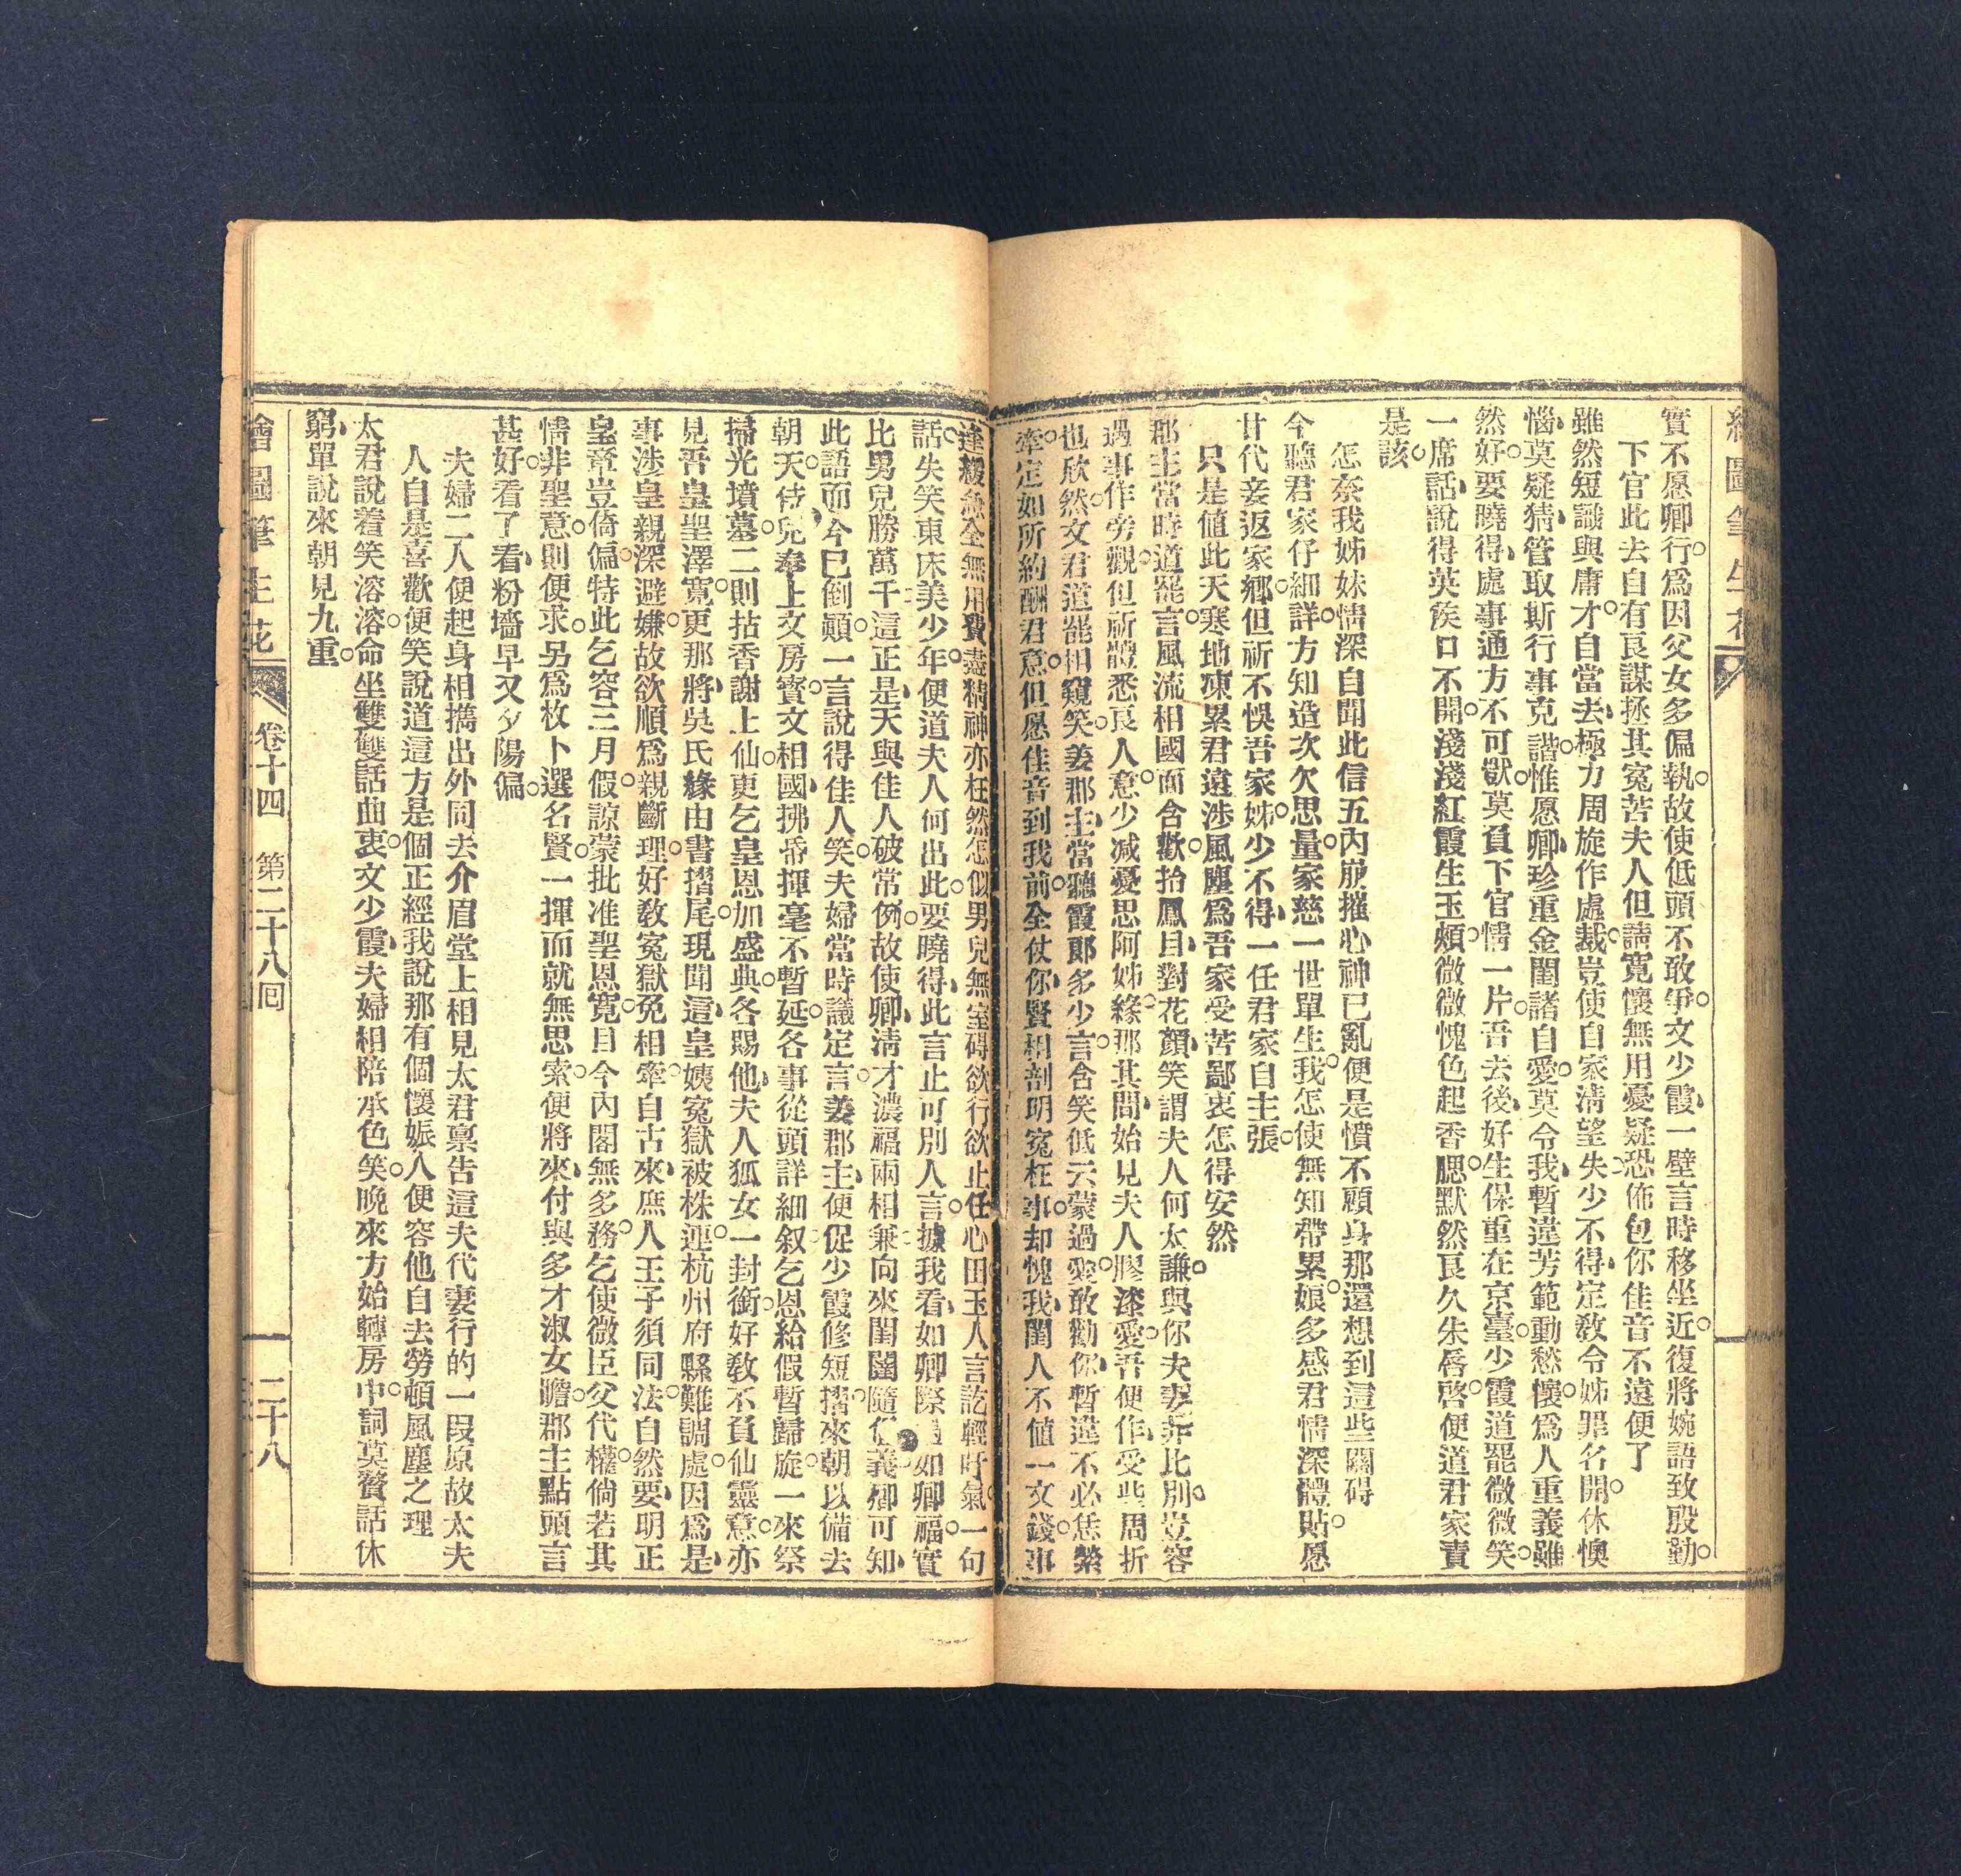 繪圖筆生花
實不愿卿行爲因父女多偏執故使低頭不敢爭文少霞一壁言時移坐近復將婉語致殷勤
下官此去自有良謀拯其寃苦夫人但請寬懷無用憂疑恐怖包你佳音不遠便了
雖然短識與庸才自當去極力周旋作處裁豈使自家清望失少不得定教令姊罪名開休懊
惱莫疑猜管取斯行事克諧惟愿卿珍重金閨諸自愛莫令我暫違芳範動愁懷爲人重義雖
然好要曉得處事通方不可獃莫負下官情一片吾去後好生保重在京臺少霞道罷微微笑
一席話說得英矦口不開淺淺紅霞生玉頰微微愧色起香腮默然良久朱唇啓便道君家責
是該
怎奈我姊妹情深自聞此信五內崩摧心神已亂便是憤不顧身那還想到這些關碍
今聽君家仔細詳方知造次欠思量家慈一世單生我怎使無知帶累娘多感君情深體貼愿
甘代妾返家鄉但祈不悞吾家姊少不得一任君家自主張
只是値此天寒地凍累君遠涉風塵爲吾家受苦鄙衷怎得安然
郡主當時道罷言風流相國面含歡抬鳳目對花顏笑謂夫人何太謙與你夫妻非比別豈容
遇事作旁觀但所體悉良人意少减憂思阿姊緣那其間始見夫人膠漆愛吾便作受些周折
也欣然文君道罷相窺笑姜郡主當聽霞郎多少言含笑低云蒙過愛敢勸你暫違不必恁縈
牽定如所約酬君意但愿佳音到我前全仗你賢相剖明寃枉事却愧我閨人不値一文錢事
逢緩急全無用費盡精神亦枉然怎似男兒無室碍欲行欲止任心田玉人言訖輕吁氣一句
話失笑東床美少年便道夫人何出此要曉得此言止可別人言據我看如卿際遇如卿福實
比男兒勝萬千這正是天與佳人破常例故使卿清才濃福兩相兼向來閨閫隨仁義卿可知
此語而今已倒顚一言說得佳人笑夫婦當時議定言姜郡主便促少霞修短摺來朝以備去
朝天侍兒奉上文房寶文相國拂帋揮毫不暫延各事從頭詳細叙乞恩給假暫歸旋一來祭
掃光墳墓二則拈香謝上仙更乞皇恩加盛典各賜他夫人狐女一封銜好教不負仙靈意亦
見吾皇聖澤寬更那將吳氏緣由書摺尾現聞這皇姨寃獄被株連杭州府縣難調處因爲是
事涉皇親深避嫌故欲順爲親斷理好敎寃獄免相牽自古來庶人王子須同法自然要明正
皇章豈倚偏特此乞容三月假諒蒙批准聖恩寬目今內閣無多務乞使微臣父代權倘若其
情非聖意則便求另爲枚卜選名賢一揮而就無思索便將來付與多才淑女瞻郡主點頭言
甚好看了看粉墻早又夕陽偏
夫婦二人便起身相攜出外同去介眉堂上相見太君禀告這夫代妻行的一段原故太夫
人自是喜歡便笑說道這方是個正經我說那有個懷娠人便容他自去勞頓風塵之理
太君說着笑溶溶命坐雙雙話曲衷文少霞夫婦相陪承色笑晚來方始轉房中詞莫贅話休
窮單說來朝見九重
繪圖筆生花 卷十四 第二十八囘 二十八